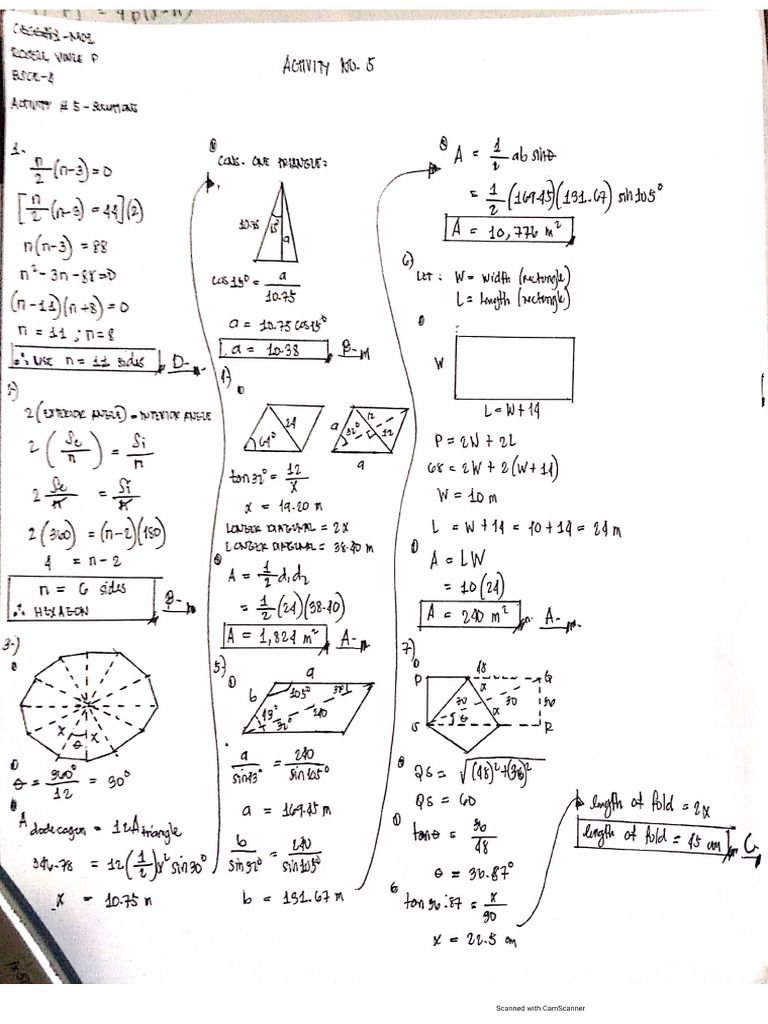 ACTIVITY NO. 5
ACTIVITY # 5 - SOLUTIONS
1.
n/2 (n-3) = 0
[n/2 (n-3) = 44](2)
n(n-3) = 88
n² - 3n - 88 = 0
(n-11)(n+8) = 0
n = 11 ; n = 8
∴ USE n = 11 sides D-
2)
2(EXTERIOR ANGLE) = INTERIOR ANGLE
2(Se/n) = Si/n
2 Se/n = Si/n
2(360) = (n-2)(180)
4 = n-2
n = 6 sides
∴ HEXAGON B-
3.)
x x
θ
θ = 360°/12 = 30°
A dodecagon = 12A triangle
346.78 = 12(1/2)x² sin30°
x = 10.75 m
CONS. ONE TRIANGLE:
10.75 15° a
cos15° = a/10.75
a = 10.75 cos15°
a = 10.38 B-
4)
64° 24
a 32° 12 12
a
tan32° = 12/x
x = 19.20 m
LONGER DIAGONAL = 2x
LONGER DIAGONAL = 38.40 m
A = 1/2 d₁d₂
= 1/2 (24)(38.40)
A = 1,824 m² A-
5.)
a
b 105°
43° 32° 240
a/sin43° = 240/sin105°
a = 169.45 m
b/sin32° = 240/sin105°
b = 131.67 m
A = 1/2 ab sinθ
= 1/2 (169.45)(131.67) sin105°
A = 10,776 m²
6)
LET : W = width (rectangle)
L = length (rectangle)
W
L = W+14
P = 2W + 2L
68 = 2W + 2(W+14)
W = 10 m
L = W+14 = 10+14 = 24 m
A = LW
= 10(24)
A = 240 m² A-
7)
48
P Q
x
30 30 36
x
S θ R
QS = √(48)²+(36)²
QS = 60
tanθ = 36/48
θ = 36.87°
tan36.87 = x/30
x = 22.5 cm
length of fold = 2x
length of fold = 45 cm C-
Scanned with CamScanner